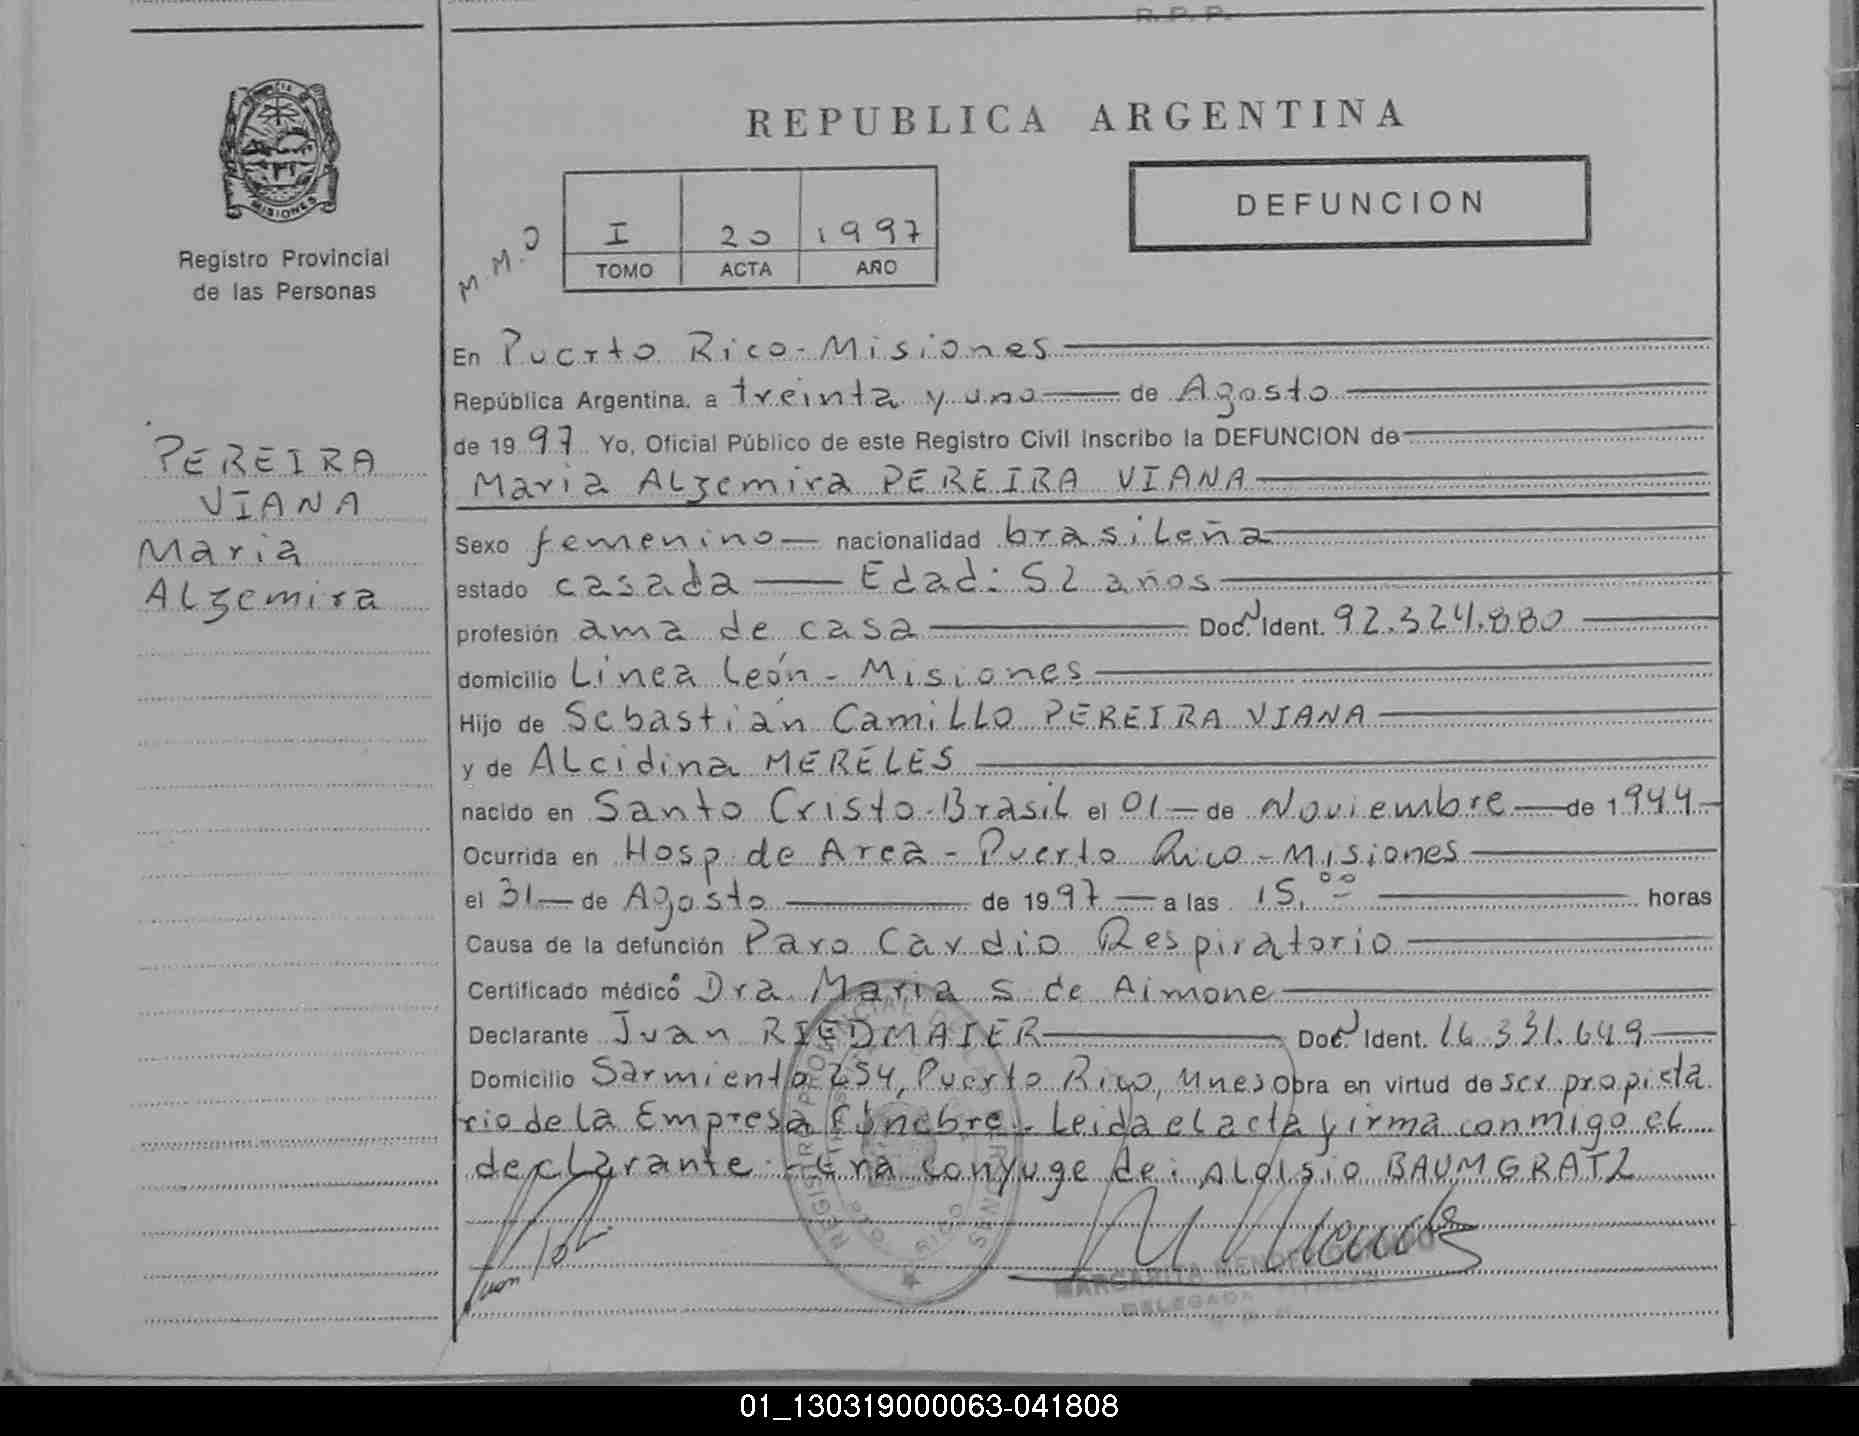 R. P. P.
MISIONES
Registro Provincial
de las Personas
PEREIRA
VIANA
Maria
Alzemira
REPUBLICA ARGENTINA
DEFUNCION
M.M.O
I 20 1997
TOMO ACTA AÑO
En Puerto Rico - Misiones
República Argentina, a treinta y uno de Agosto
de 1997 Yo, Oficial Público de este Registro Civil inscribo la DEFUNCION de
Maria Alzemira PEREIRA VIANA
Sexo femenino nacionalidad brasileña
estado casada Edad: 52 años
profesión ama de casa Doc. Ident. 92.324.880
domicilio Línea León - Misiones
Hijo de Sebastián Camillo PEREIRA VIANA
y de Alcidina MERELES
nacido en Santo Cristo - Brasil el 01 de Noviembre de 1944
Ocurrida en Hosp. de Area - Puerto Rico - Misiones
el 31 de Agosto de 1997 a las 15,00 horas
Causa de la defunción Paro Cardio Respiratorio
Certificado médico Dra. Maria S de Aimone
Declarante Juan RIEDMAIER Doc. Ident. 16.331.649
Domicilio Sarmiento 254, Puerto Rico, Mnes Obra en virtud de ser propieta
rio de la Empresa Fúnebre - Leida el acta firma conmigo el
declarante - Era conyuge de: Aloisio BAUMGRATZ
REGISTRO PROVINCIAL DE LAS PERSONAS
PTO. RICO
Juan
MARGARITA
DELEGADA TITULAR
01_130319000063-041808